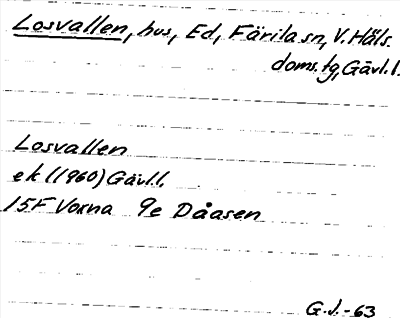 Losvallen, hus, Ed, Färila sn, V. Häls.
doms. tg, Gävl. l.
Losvallen
ek (1960) Gävl.l.
15F Voxna 9e Dåasen
G.J. -63